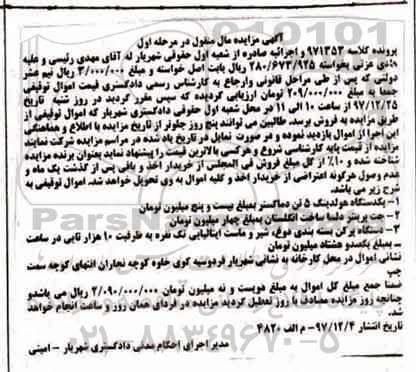 آگهی مزایده مال منقول در مرحله اول
پرونده کلاسه ۹۷۱۳۵۳ و اجرائیه صادره از شعبه اول حقوقی شهریار له آقای مهدی رئیسی و علیه
هادی عزتی بخواسته ۲۸۰/۶۷۳/۹۲۵ ریال بابت اصل خواسته و مبلغ ۳/۰۰۰/۰۰۰ ریال نیم عشر
دولتی که پس از طی مراحل قانونی وارجاع به کارشناس رسمی دادگستری قیمت اموال توقیفی
جمعا به مبلغ ۲۰۹/۰۰۰/۰۰۰ تومان ارزیابی گردیده که سپس مقرر گردید در روز شنبه تاریخ
۹۷/۱۲/۲۵ از ساعت ۱۰ الی ۱۱ در محل شعبه اول حقوقی دادگستری شهریار که اموال توقیفی از
طریق مزایده به فروش برسد. طالبین می توانند پنج روز جلوتر از تاریخ مزایده با اطلاع و هماهنگی
این اجرا از اموال بازدید نموده و هر صورت تمایل در تاریخ یاد شده در مراسم مزایده شرکت نمایند
مزایده از قیمت پایه کارشناسی شروع و هرکس بالاترین قیمت را پیشنهاد نماید بعنوان برنده مزایده
شناخته شده و ۱۰٪ از کل مبلغ فروش فی المجلس از خریدار اخذ و باقی پس از گذشت یک ماه و
عدم وصول هرگونه اعتراضی از خریدار اخذ و کلیه اموال به وی تحویل خواهد شد. اموال توقیفی به
شرح زیر می باشد.
۱- یکدستگاه هولدینگ ۵ تن دماکستر بمبلغ بیست و پنج میلیون تومان
۲- جت پرینتر دلسا ساخت انگلستان بمبلغ چهار میلیون تومان
۳- دستگاه پرکن بسته بندی دوغ، شیر و ماست ایتالیایی تک نفره به ظرفیت ۱۰ هزار تایی در ساعت
ـ بمبلغ یکصدو هشتاد میلیون تومان
نشانی اموال در محل کارخانه به نشانی شهریار فردوسیه کوی خاوه کوچه نجاران انتهای کوچه سمت
چپ
ضمنا جمع مبلغ کل اموال به مبلغ دویست و نه میلیون تومان ۲/۰۹۰/۰۰۰/۰۰۰ ریال می باشدو
چنانچه روز مزایده مصادف با روز تعطیل گردید مزایده در فردای همان روز و ساعت انجام خواهد
شد.
تاریخ انتشار ۹۷/۱۲/۴- م الف ۴۸۲۰
مدیر اجرای احکام مدنی دادگستری شهریار - امینی
۰۲۱-۸۸۳۴۹۶۷۰-۵